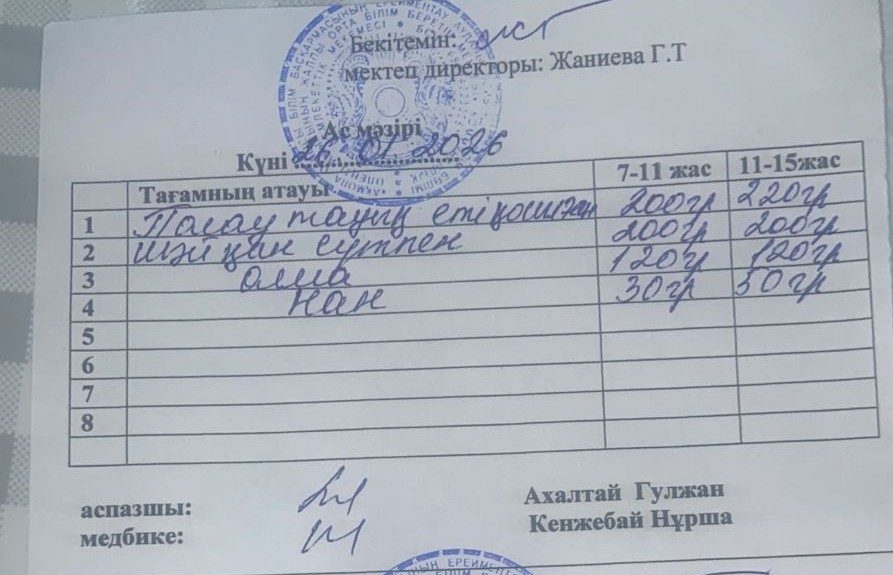 Бекітемін:
мектеп директоры: Жаниева Г.Т
Ас мәзірі
Күні 26. 01 2026
Тағамның атауы 7-11 жас 11-15жас
1 Палау тауық еті қосылған 200гр 220гр
2 Шәй қан сүтпен 200гр 200гр
3 алма 120гр 120гр
4 нан 30гр 50гр
5
6
7
8
аспазшы: Ахалтай Гулжан
медбике: Кенжебай Нұрша